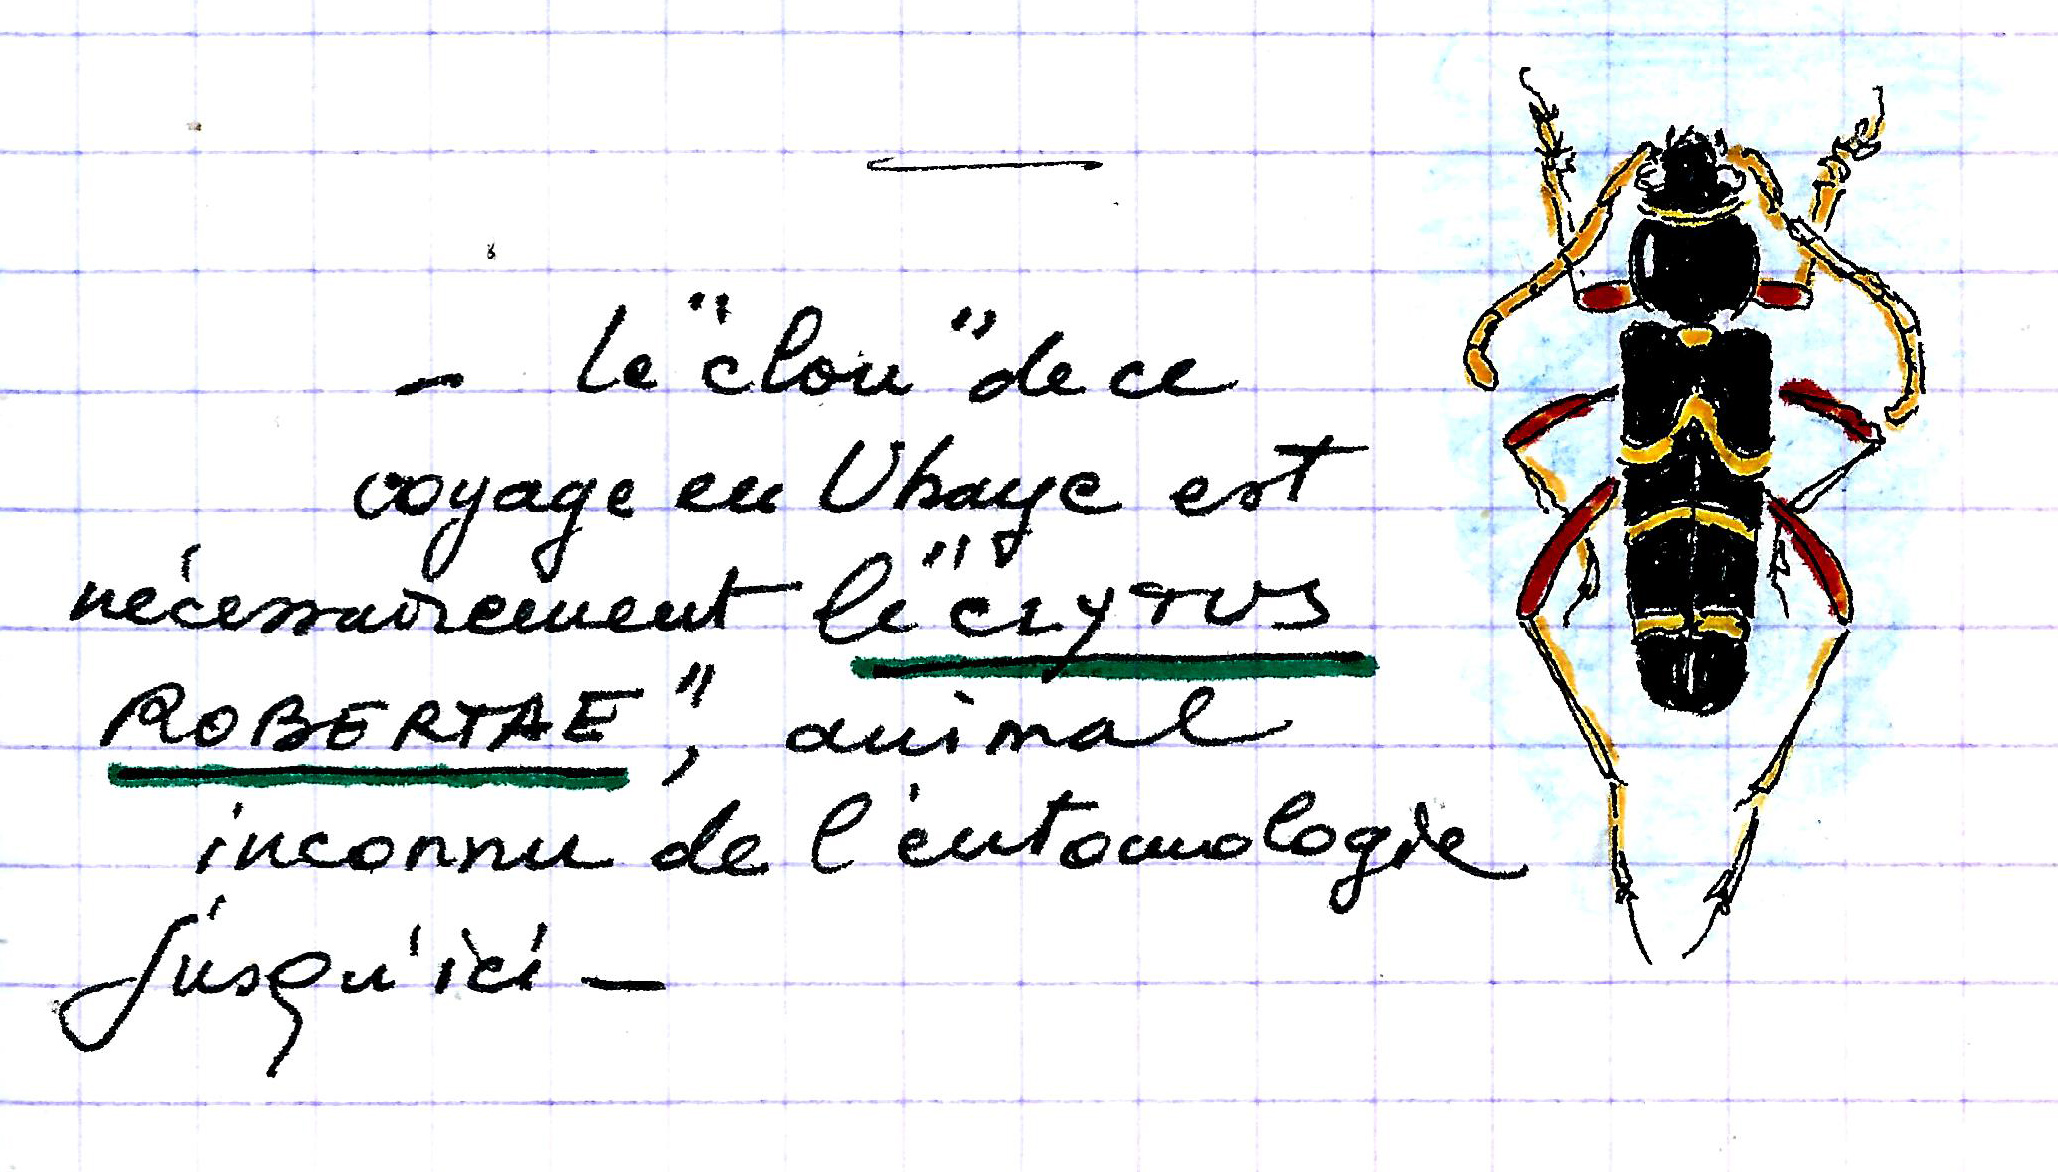 - Le "clou" de ce
voyage en Ubaye est
nécessairement le "CLYTUS
ROBERTAE", animal
inconnu de l'entomologie
jusqu'ici -